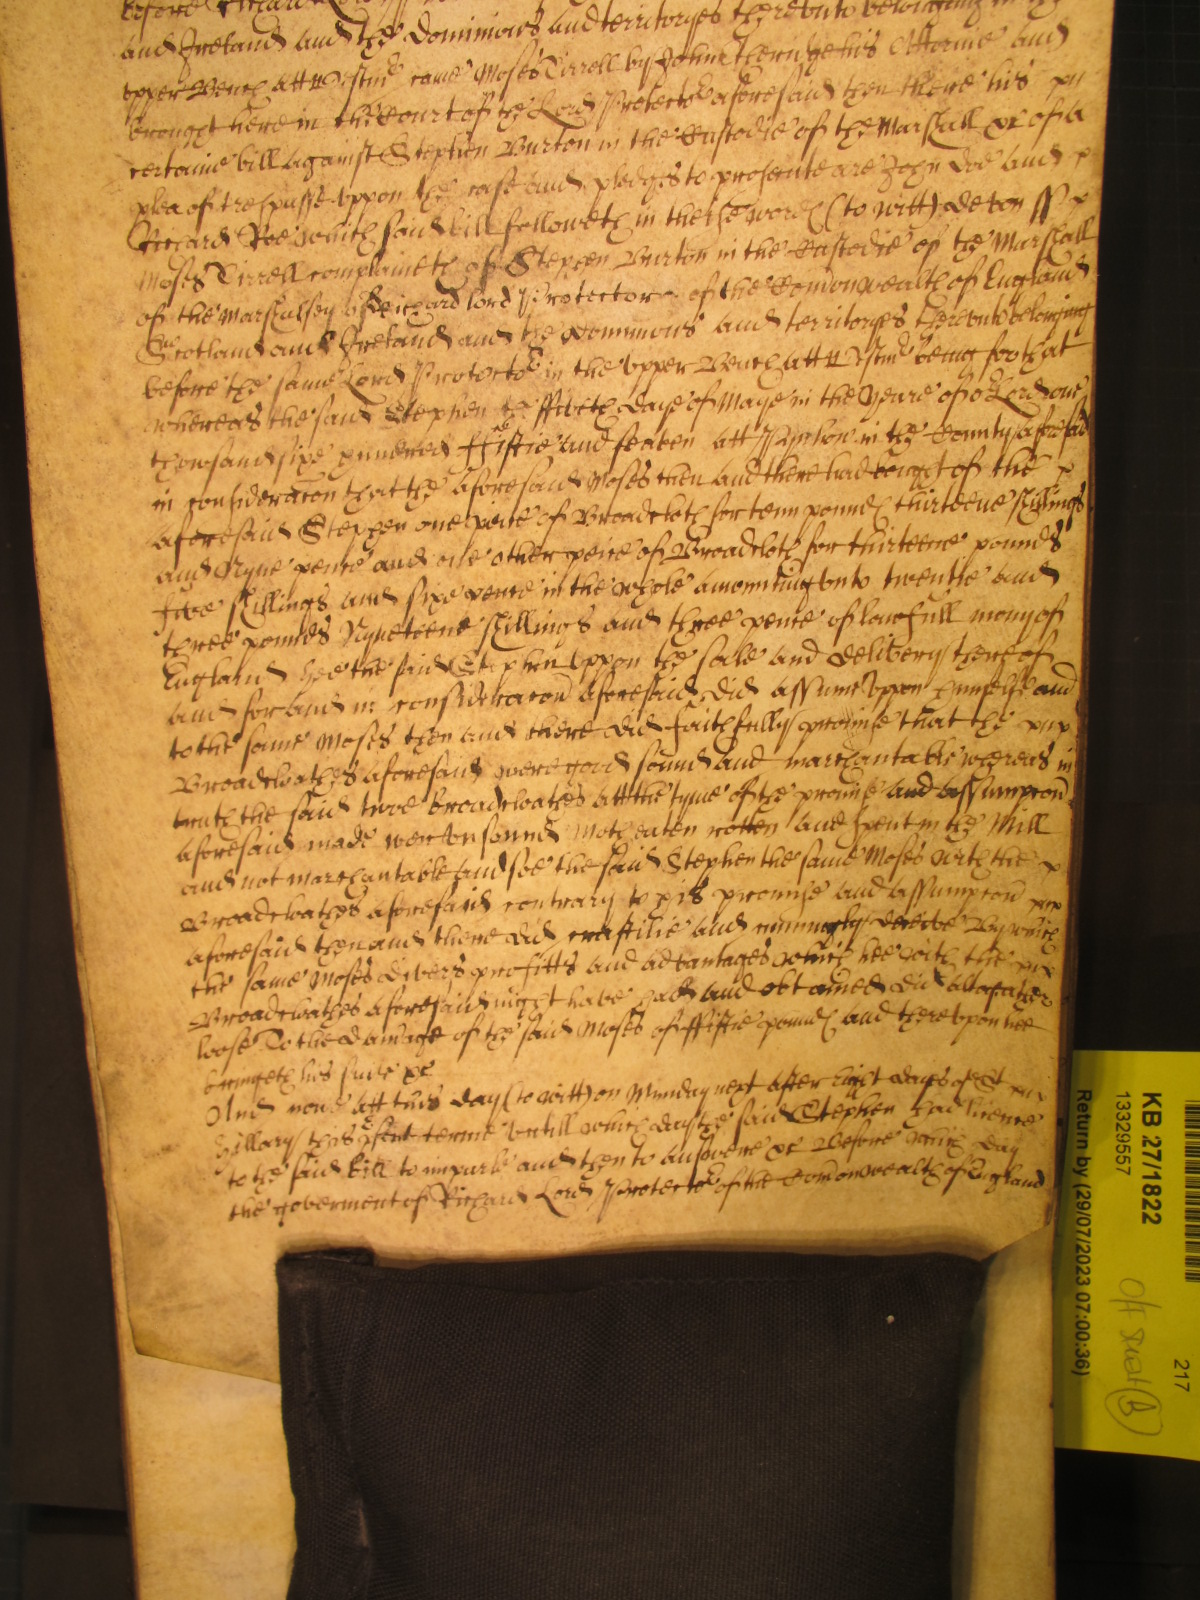 before Richard Lord
and Ireland and the Dominions and territoryes therevnto belonging in the
vpper Bench att Westmr came Moses Tirrell by John his Attornie and
brought here in the Court of the Lord Protector aforesaid then there his
certaine bill against Stephen Burton in the Custodie of the Marshall &c of a
plea of trespasse vppon the case and pledges to prosecute are John Doe and
Richard Roe which said bill followeth in these words (to witt) Devon ss
Moses Tirrell complaineth of Stephen Burton in the Custodie of the Marshall
of the Marshalsey of Richard lord Protector of the Comonwealth of England
Scotland and Ireland and the Dominions and territoryes therevnto belonging
before the same Lord Protector in the vpper Bench att Westmr being for that
whereas the said Stephen the day of Maye in the yeare of or Lord one
thowsand sixe hundred ffiftie and seaven att in the County aforesaid
in consideracon that the aforesaid Moses then and there had bought of the
aforesaid Stephen one peice of Broadcloth for tenn pounds thirteene shillings
and Nyne pence and one other peice of Broadcloth for thirteene pounds
five shillings and sixe pence in the whole amounting vnto twentie and
three pounds Nyneteene shillings and three pence of lawfull mony of
England hee the said Stephen vppon the sale and delivery thereof
and for and in consideracon aforesaid did assume vppon himselfe and
to the same Moses then and there did faithfully promise that the
Broadcloathes aforesaid were good sound and marchantable whereas in
truth the said twoe broadcloathes att the tyme of the promise and assumpcon
aforesaid made were vnsound Moth eaten rotten and spent in the Mill
and not marchantable and soe the said Stephen the same Moses with the
Broadcloathes aforesaid contrary to his promise and assumpcon
aforesaid then and there did craftilie and cunningly deceive By which
the same Moses divers profitts and advantages which hee with the
Broadcloathes aforesaid might have had and obtained did altogather
loose To the damage of the said Moses of ffiftie pounds and therevpon hee
bringeth his suite &c
And nowe att this day (to witt) on Munday next after eight dayes of St
Hillary this psent terme vntill which day the said Stephen had licence
to the said bill to imparle and then to answere &c Before which day
the goverment of Richard Lord Protector of the Comonwealth of England
KB 27/1822
13329557
Return by (29/07/2023 07:00:36)
217